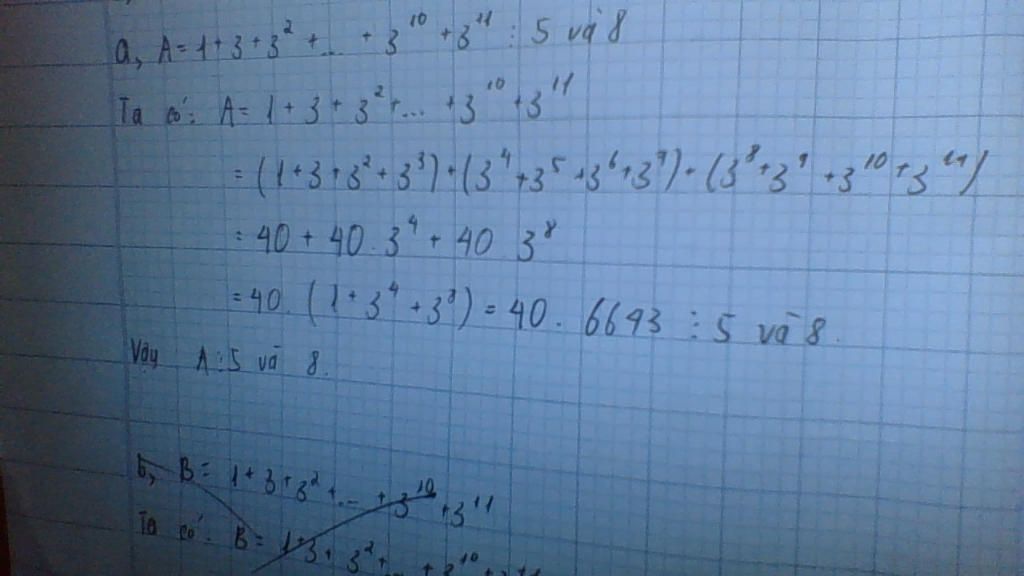 a, A = 1 + 3 + 3² + ... + 3¹⁰ + 3¹¹ ⋮ 5 và 8
Ta có: A = 1 + 3 + 3² + ... + 3¹⁰ + 3¹¹
= (1 + 3 + 3² + 3³) + (3⁴ + 3⁵ + 3⁶ + 3⁷) + (3⁸ + 3⁹ + 3¹⁰ + 3¹¹)
= 40 + 40 . 3⁴ + 40 . 3⁸
= 40 . (1 + 3⁴ + 3⁸) = 40 . 6643 ⋮ 5 và 8.
Vậy A ⋮ 5 và 8.
b, B = 1 + 3 + 3² + ... + 3¹⁰ + 3¹¹
Ta có: B = 1 + 3 + 3² + ... + 3¹⁰ + 3¹¹